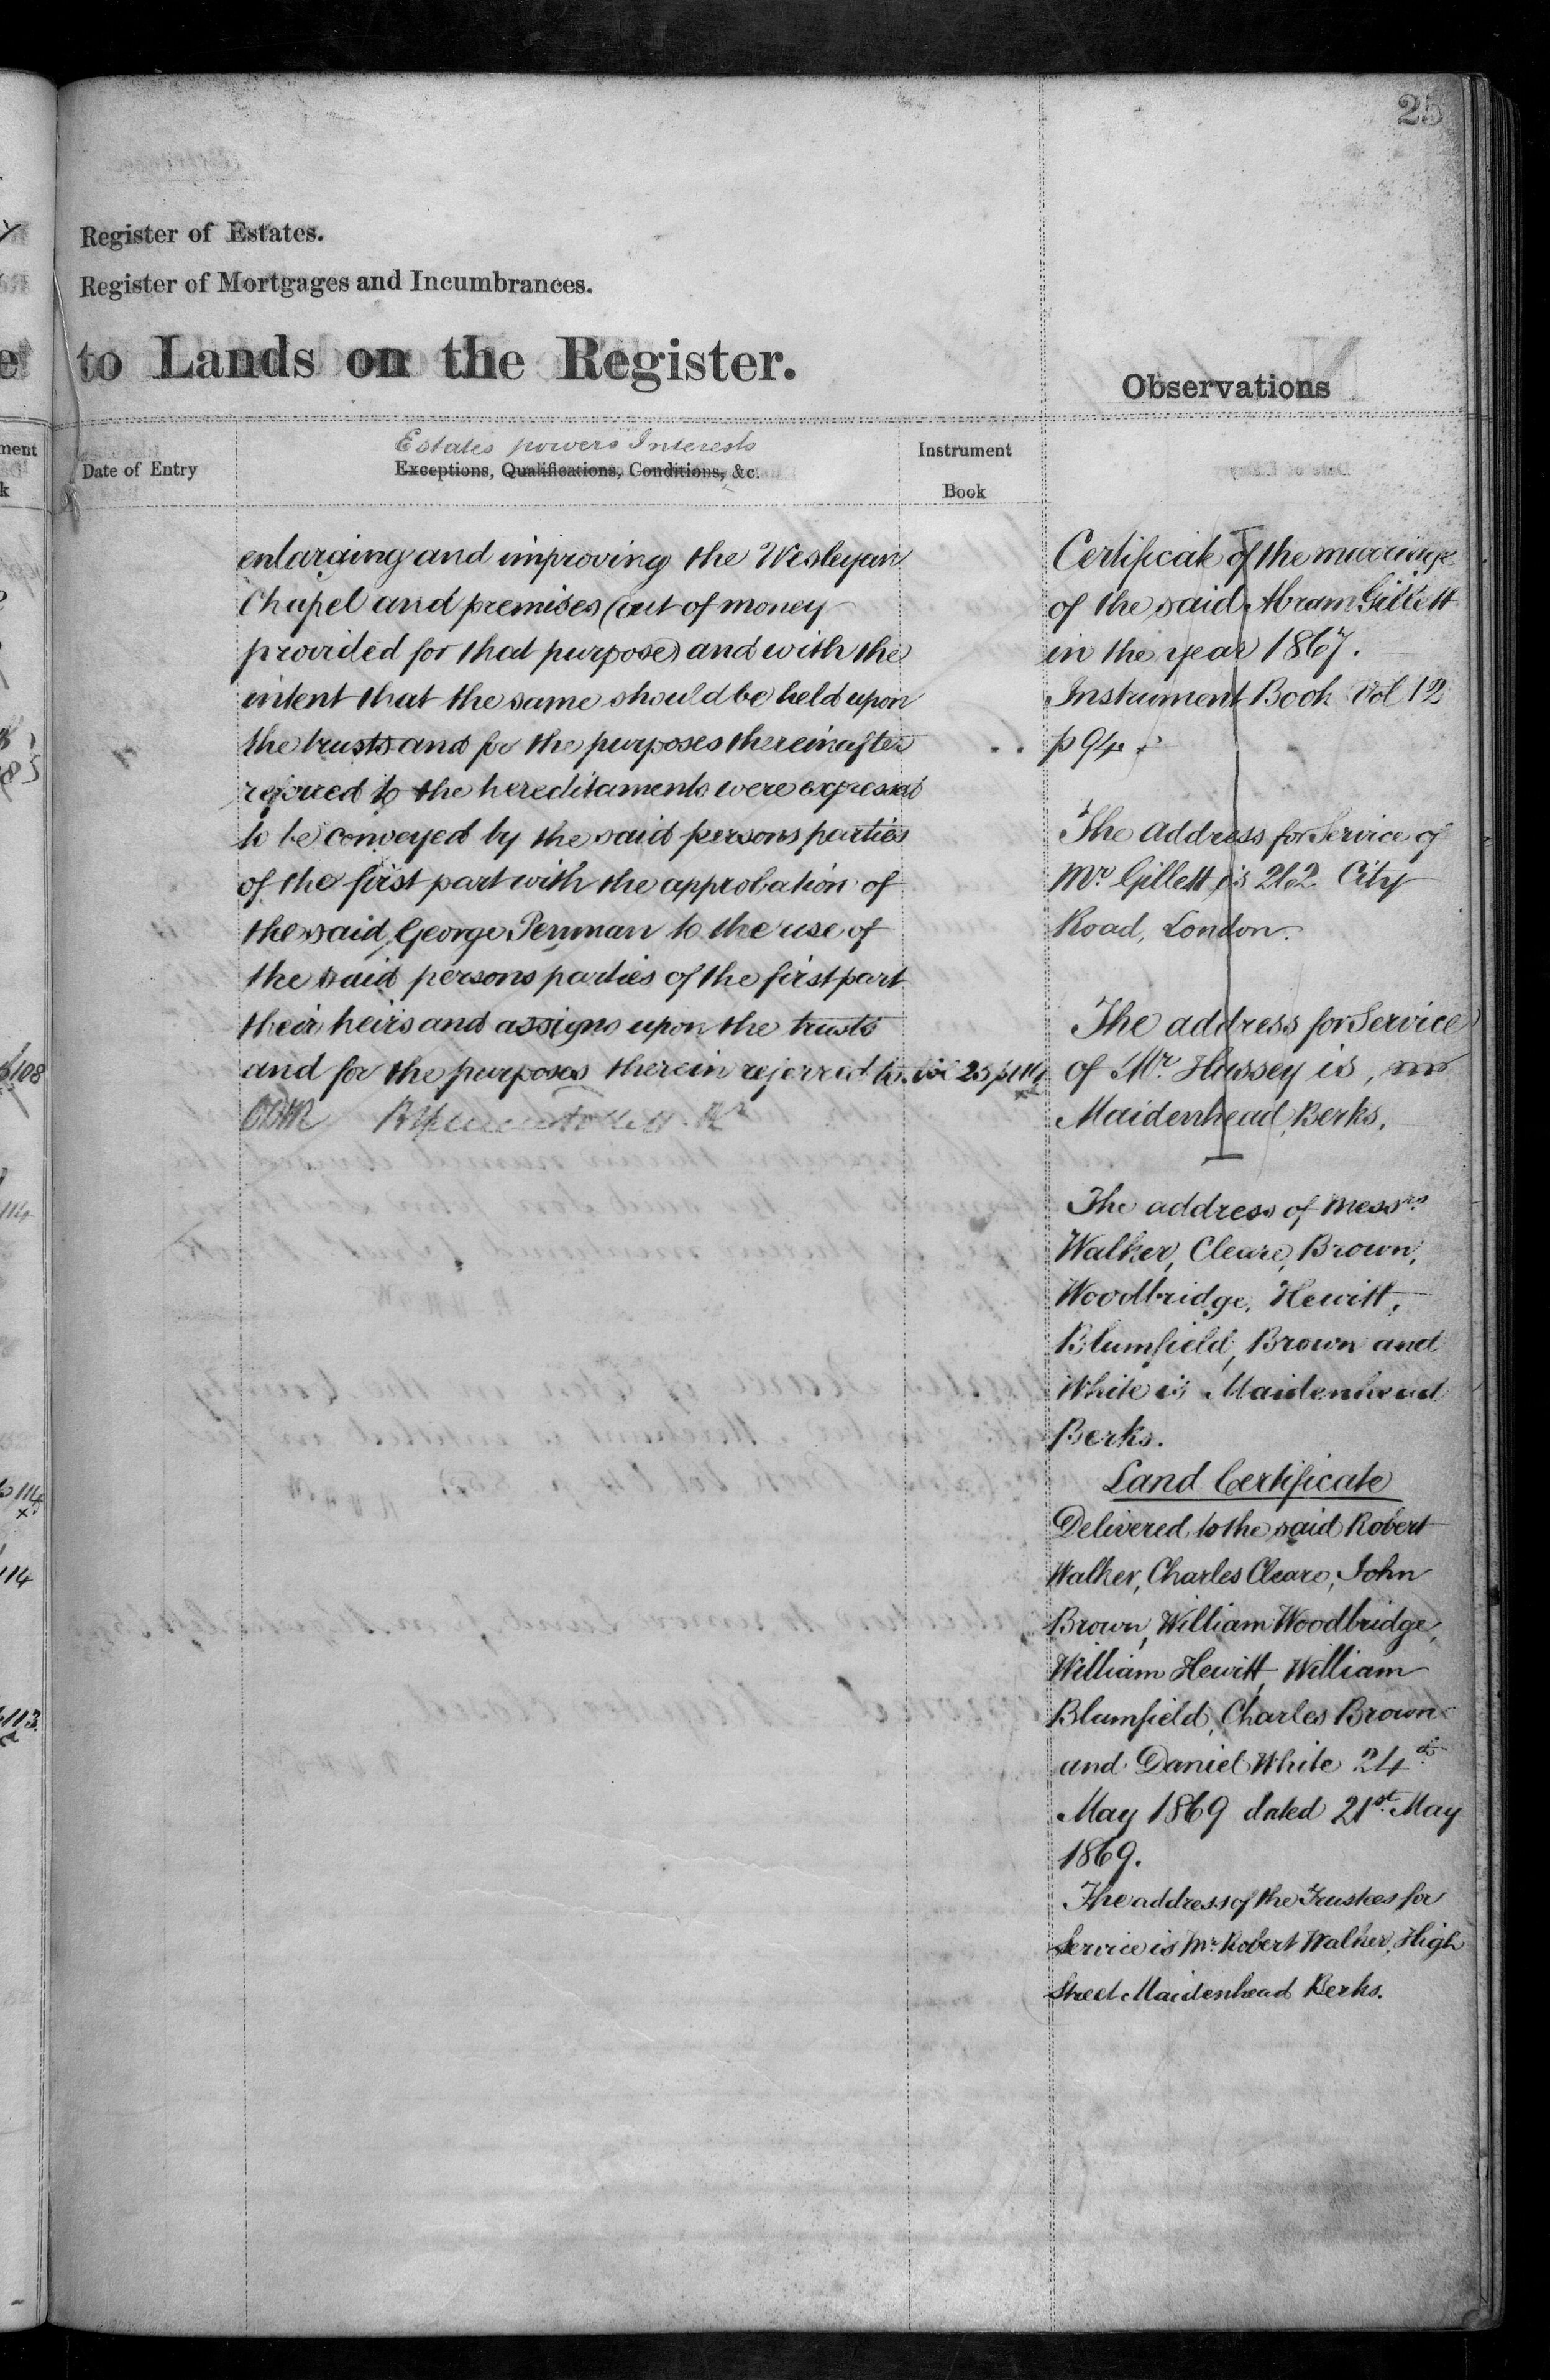 25
Register of Estates.
Register of Mortgages and Incumbrances.
to Lands on the Register.
Observations
Date of Entry
Estates powers Interests
Exceptions, Qualifications, Conditions, &c.
Instrument
Book
enlarging and improving the Wesleyan
Chapel and premises (out of money
provided for that purpose) and with the
intent that the same should be held upon
the trusts and for the purposes thereinafter
referred to the hereditaments were expressed
to be conveyed by the said persons parties
of the first part with the approbation of
the said George Penman to the use of
the said persons parties of the first part
their heirs and assigns upon the trusts
and for the purposes therein referred to. Vol 25 p 114
Certificate of the marriage
of the said Abram Gillett
in the year 1867.
Instrument Book Vol 12
p 94.
The address for Service of
Mr. Gillett is 262 City
Road, London.
The address for Service
of Mr. Hussey is,
Maidenhead, Berks.
The address of Messrs.
Walker, Cleare, Brown,
Woodbridge, Hewitt,
Blumfield, Brown and
White is Maidenhead
Berks.
Land Certificate
Delivered to the said Robert
Walker, Charles Cleare, John
Brown, William Woodbridge,
William Hewitt, William
Blumfield, Charles Brown
and Daniel White 24th
May 1869 dated 21st. May
1869.
The address of the Trustees for
Service is Mr. Robert Walker, High
Street Maidenhead Berks.